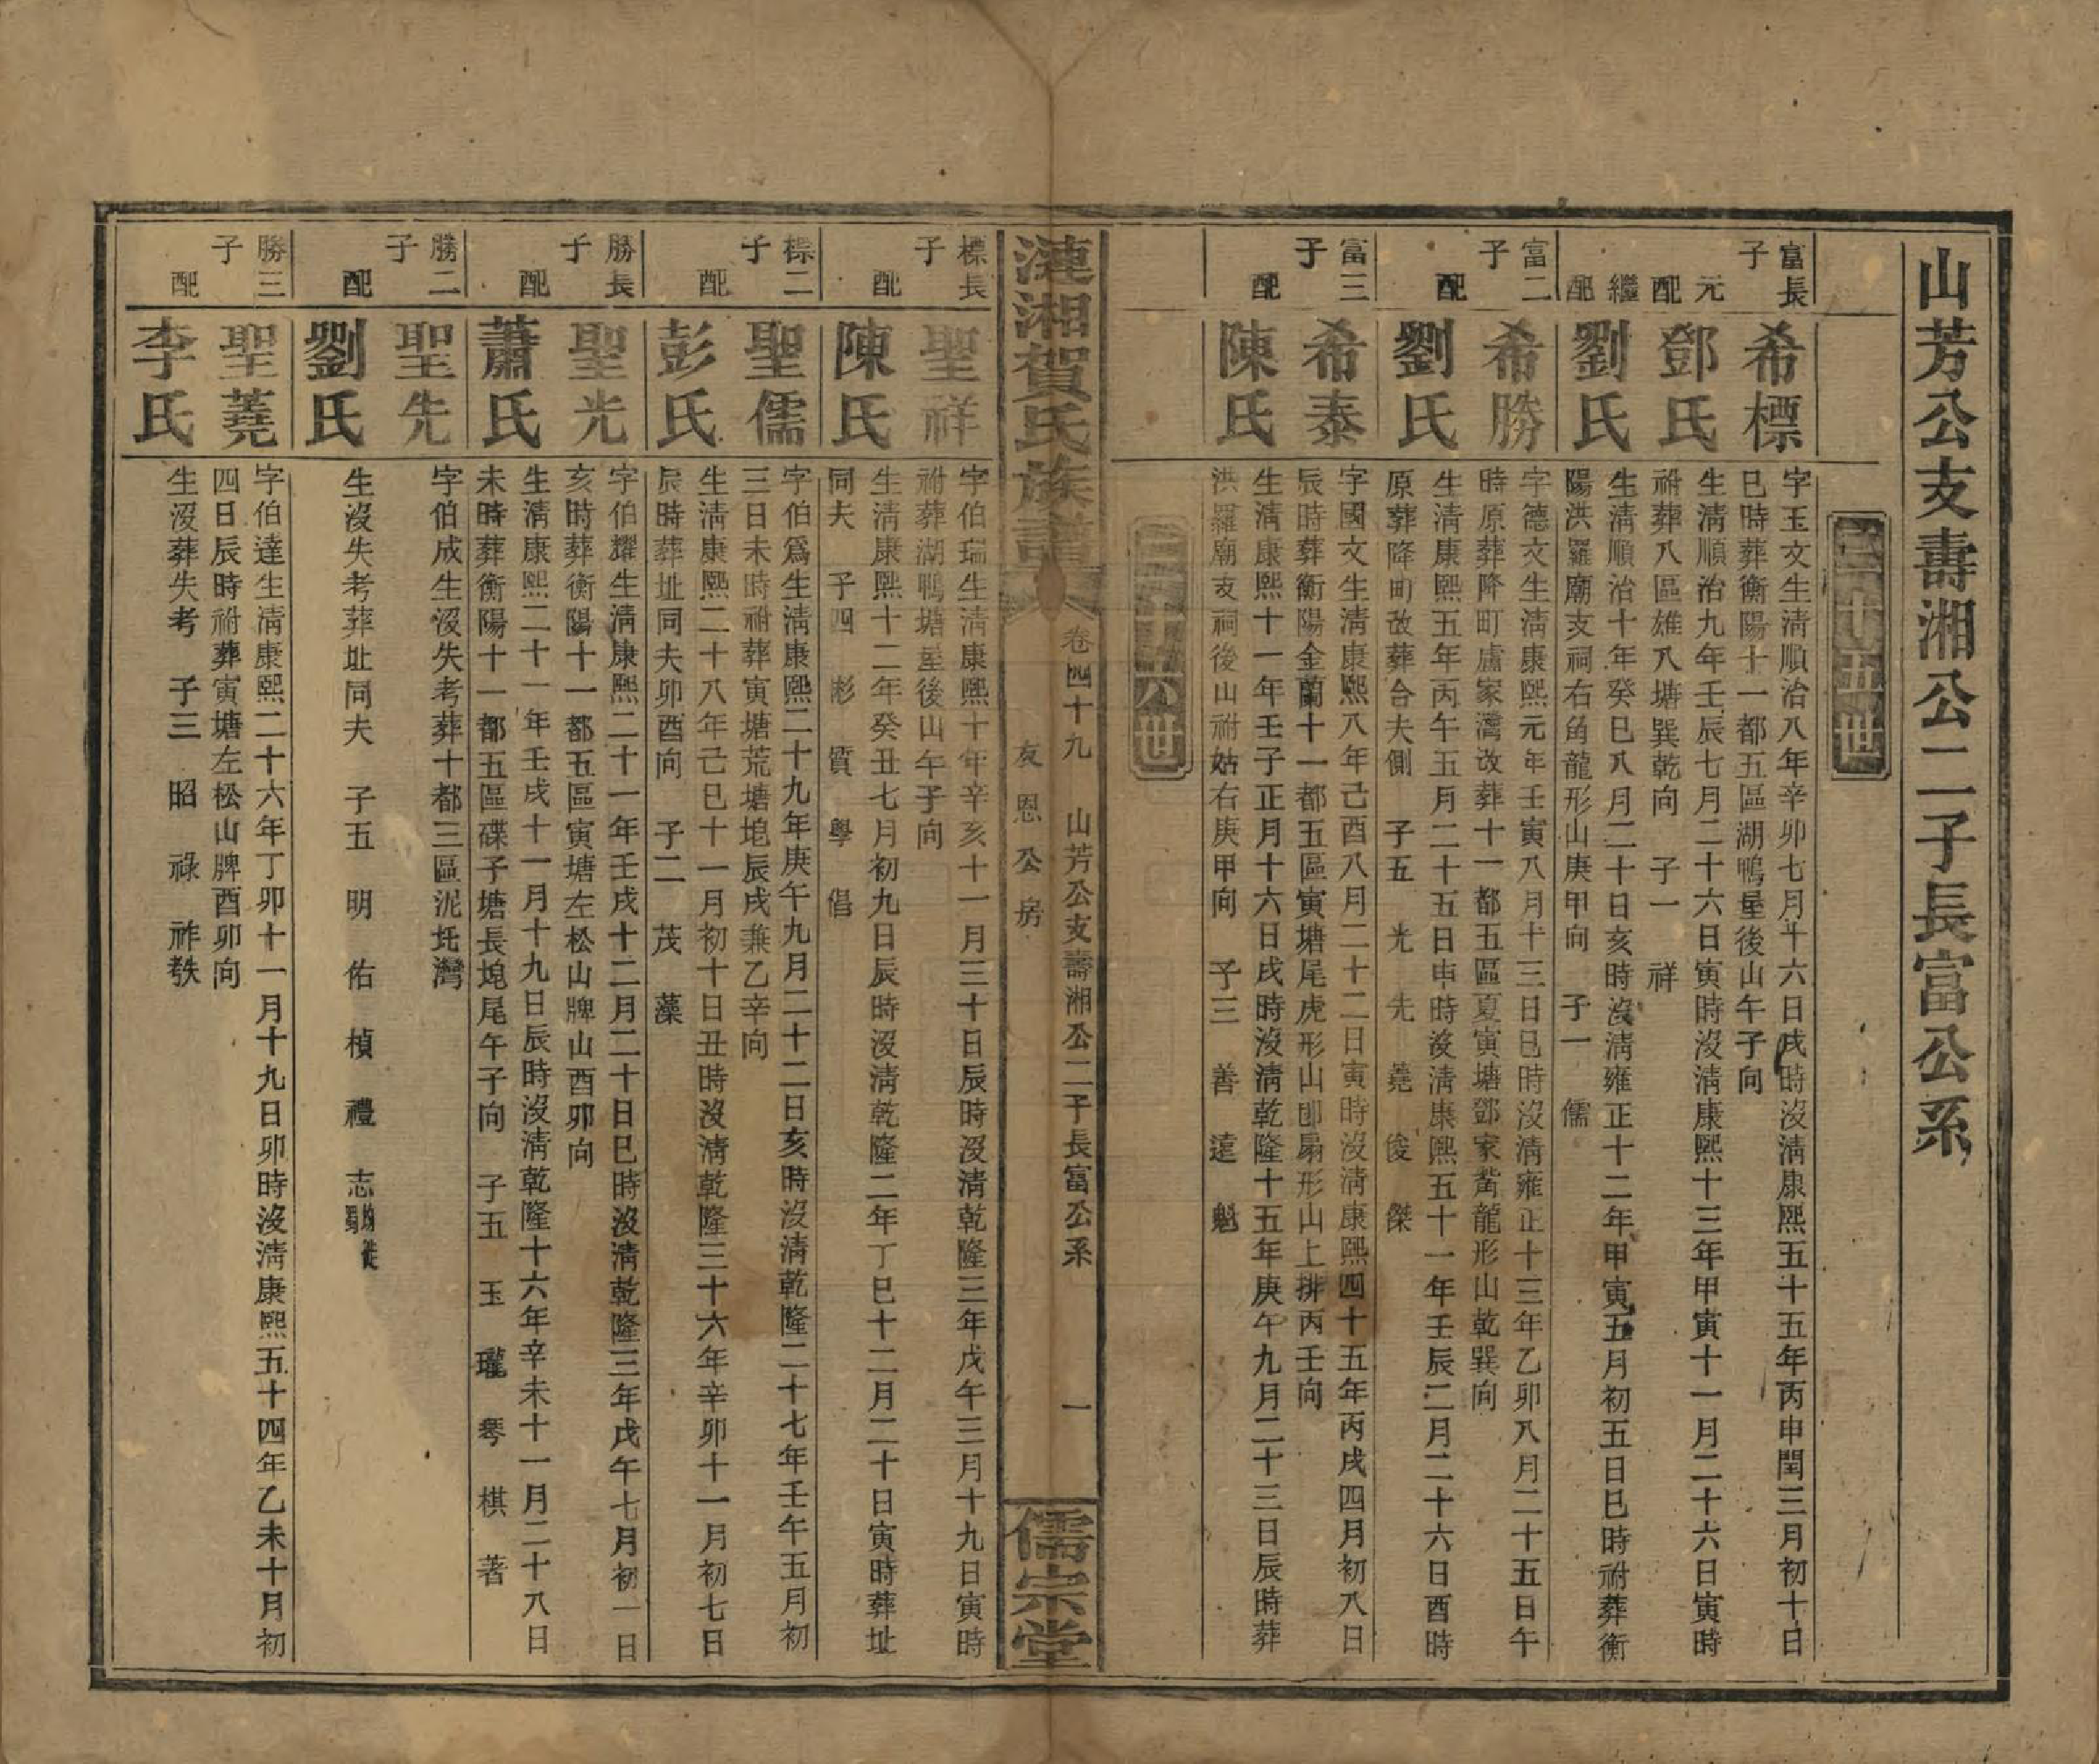 山芳公支壽湘公二子長富公系
三十五世
富長子 希標 字玉文生淸順治八年辛卯七月十六日戌時沒淸康熙五十五年丙申閏三月初十日
巳時葬衡陽十一都五區湖鴨屋後山午子向
元配 鄧氏 生淸順治九年壬辰七月二十六日寅時沒淸康熙十三年甲寅十一月二十六日寅時
祔葬八區雄八塘巽乾向 子一 祥
繼配 劉氏 生淸順治十年癸巳八月二十日亥時沒淸雍正十二年甲寅五月初五日巳時祔葬衡
陽洪羅廟支祠右角龍形山庚甲向 子一 儒
富二子 希勝 字德文生淸康熙元年壬寅八月十三日巳時沒淸雍正十三年乙卯八月二十五日午
時原葬降町盧家灣改葬十一都五區夏寅塘鄧家嵛龍形山乾巽向
配 劉氏 生淸康熙五年丙午五月二十五日申時沒淸康熙五十一年壬辰二月二十六日酉時
原葬降町改葬合夫側 子五 光 先 蕘 俊 傑
富三子 希泰 字國文生淸康熙八年己酉八月二十二日寅時沒淸康熙四十五年丙戌四月初八日
辰時葬衡陽金蘭十一都五區寅塘尾虎形山卽扇形山上排丙壬向
配 陳氏 生淸康熙十一年壬子正月十六日戌時沒淸乾隆十五年庚午九月二十三日辰時葬
洪羅廟支祠後山祔姑右庚甲向 子三 善 遠 魁
三十六世
漣湘賀氏族譜 卷四十九 山芳公支壽湘公二子長富公系 一 儒宗堂
友恩公房
標長子 聖祥 字伯瑞生淸康熙十年辛亥十一月三十日辰時沒淸乾隆三年戊午三月十九日寅時
祔葬湖鴨塘屋後山午子向
配 陳氏 生淸康熙十二年癸丑七月初九日辰時沒淸乾隆二年丁巳十二月二十日寅時葬址
同夫 子四 彬 質 學 倡
標二子 聖儒 字伯爲生淸康熙二十九年庚午九月二十二日亥時沒淸乾隆二十七年壬午五月初
三日未時祔葬寅塘荒塘坉辰戌兼乙辛向
配 彭氏 生淸康熙二十八年己巳十一月初十日丑時沒淸乾隆三十六年辛卯十一月初七日
辰時葬址同夫卯酉向 子二 茂 藻
勝長子 聖光 字伯耀生淸康熙二十一年壬戌十二月二十日巳時沒淸乾隆三年戊午七月初一日
亥時葬衡陽十一都五區寅塘左松山牌山酉卯向
配 蕭氏 生淸康熙二十一年壬戌十一月十九日辰時沒淸乾隆十六年辛未十一月二十八日
未時葬衡陽十一都五區碟子塘長坉尾午子向 子五 玉 瓏 琴 棋 著
勝二子 聖先 字伯成生沒失考葬十都三區泥圫灣
配 劉氏 生沒失考葬址同夫 子五 明 佑 楨 禮 志
勝三子 聖蕘 字伯達生淸康熙二十六年丁卯十一月十九日卯時沒淸康熙五十四年乙未十月初
四日辰時祔葬寅塘左松山牌酉卯向
配 李氏 生沒葬失考 子三 昭 祿 祚